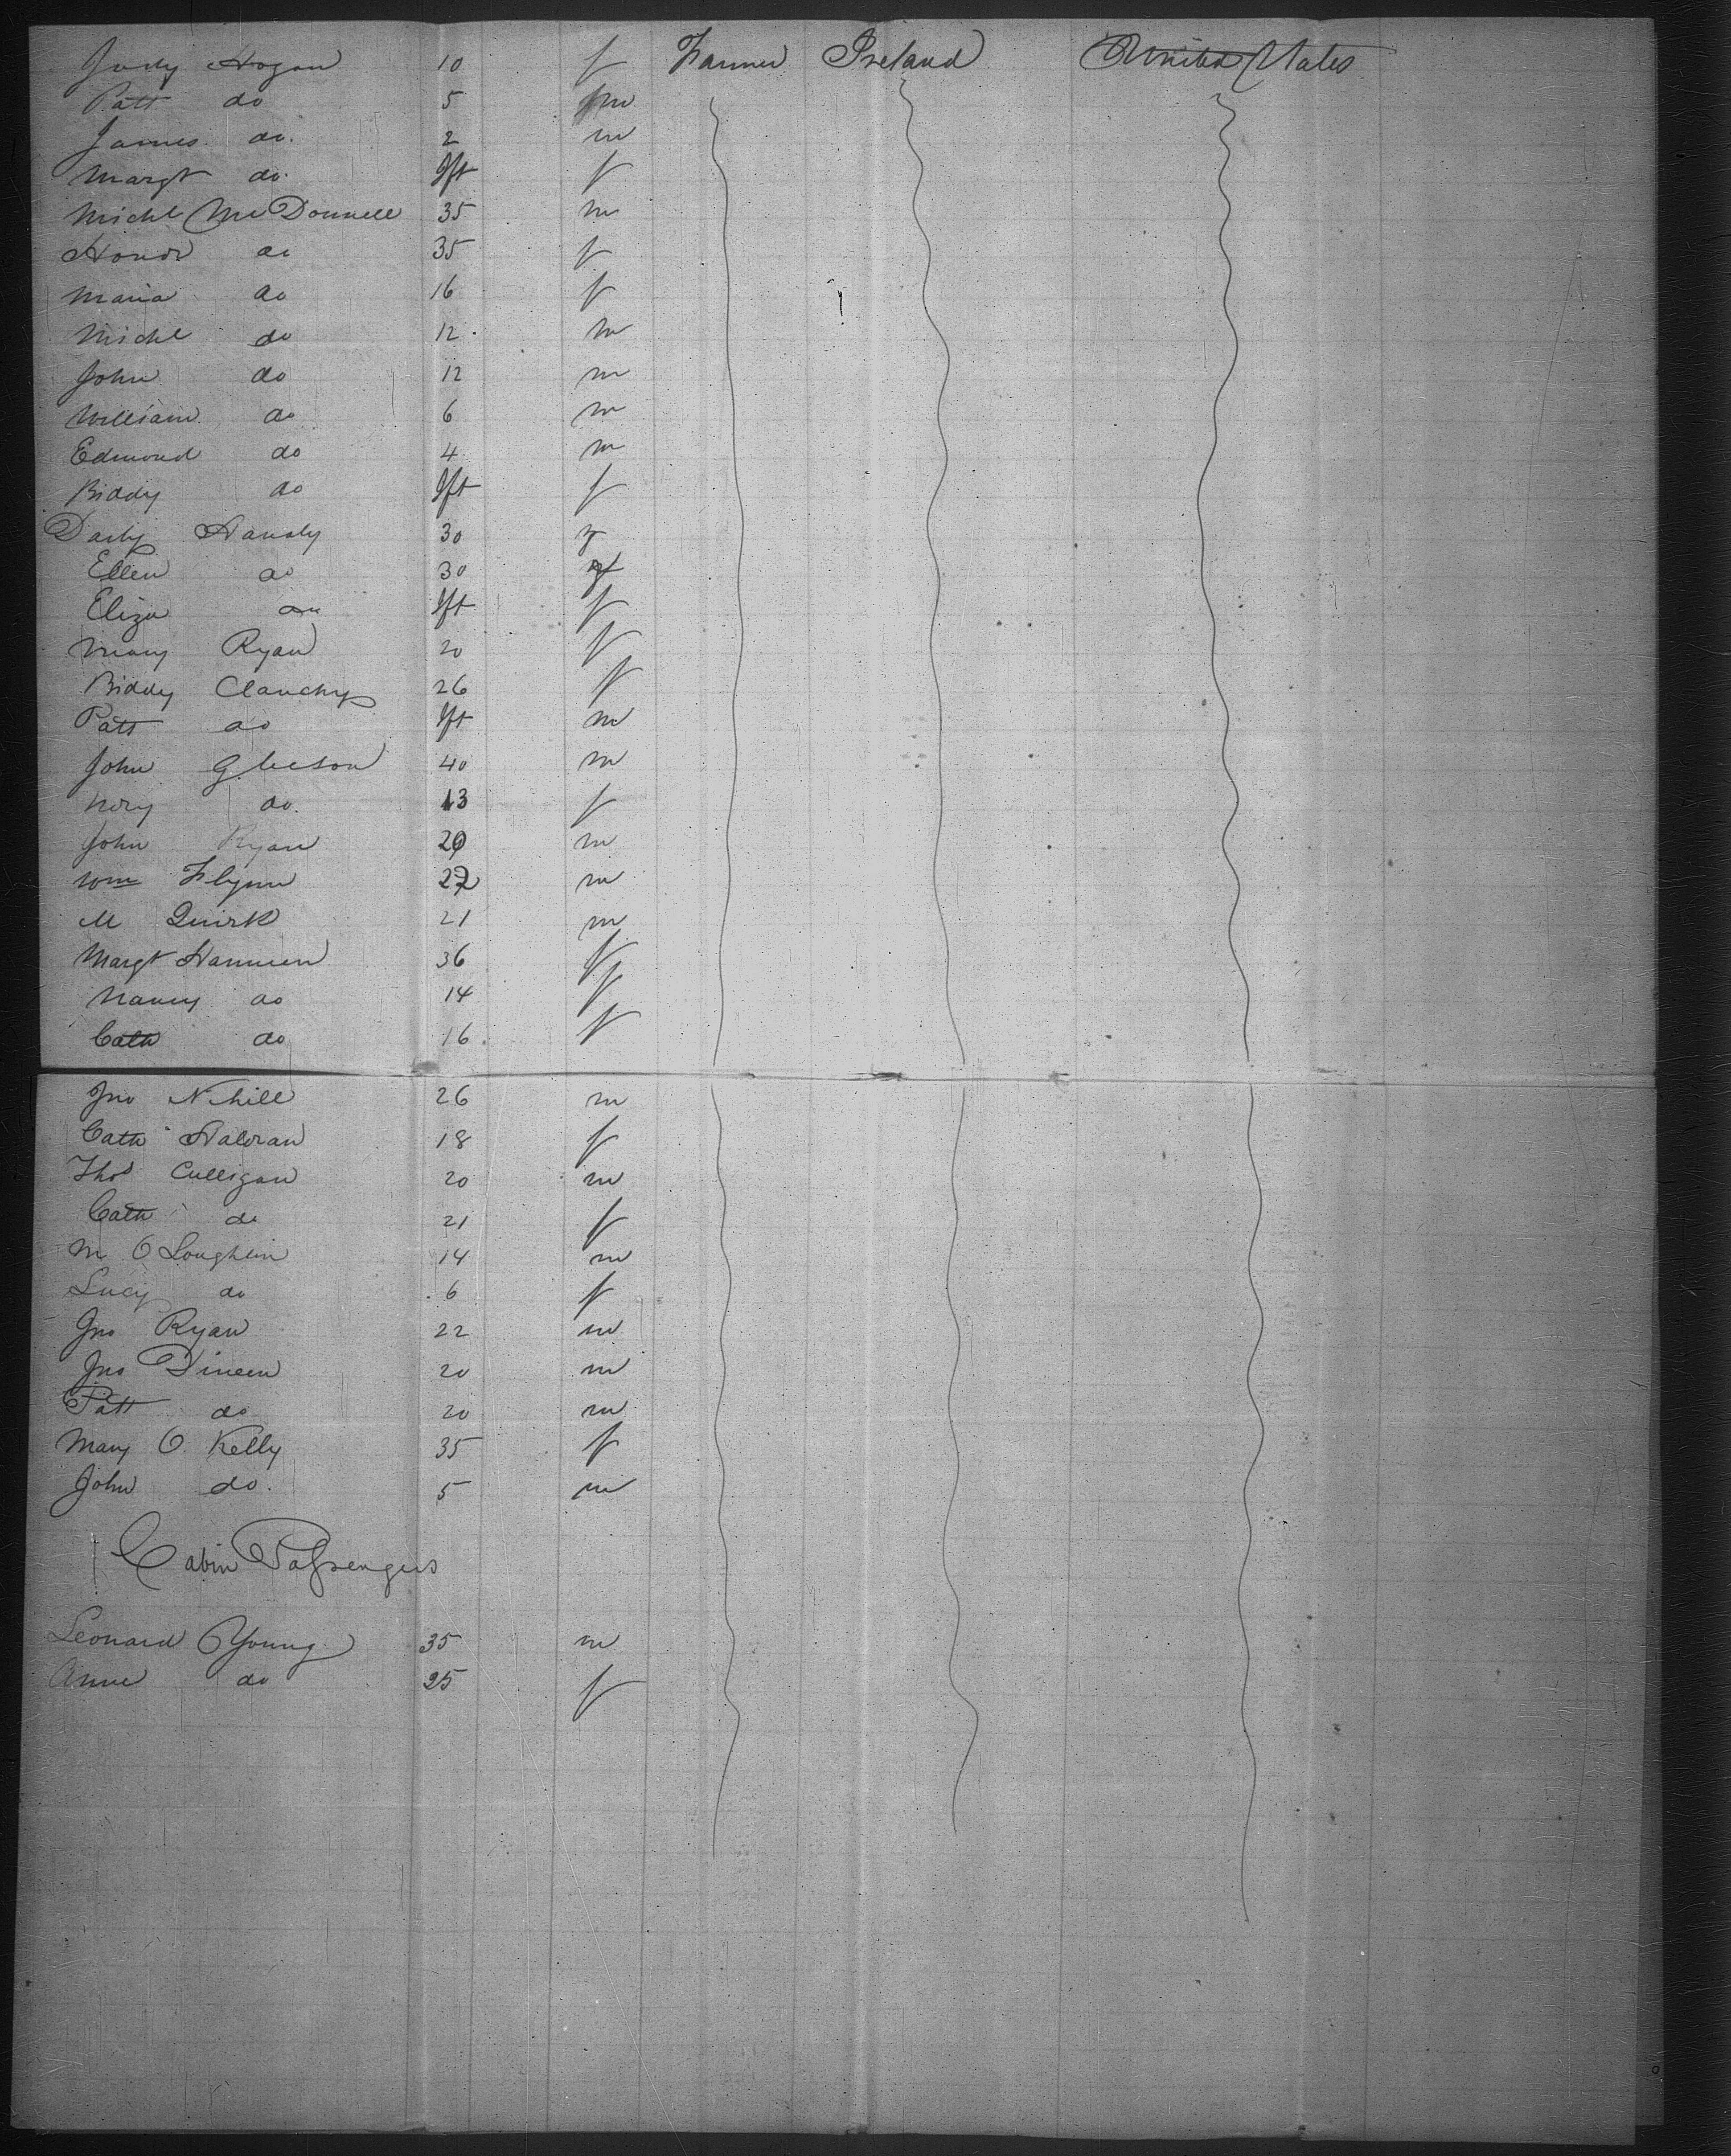 Judy Hogan 10 f Farmer Ireland United States
Patt do 5 m
James do. 2 m
Margt do. Ift f
Michl McDonnell 35 m
Honor do 35 f
Maria do 16 f
Michl do 12 m
John do 12 m
William do 6 m
Edmond do 4 m
Biddy do Ift f
Darby 30
Ellen do 30 f
Eliza do Ift f
Mary Ryan 20 f
Biddy Clanchy 26 f
Patt do Ift m
John Gleeson 40 m
Nory do. 13 f
John Ryan 20 m
Wm Flynn 22 m
M Quirk 21 m
Margt Hannien 36 f
Nancy do 14 f
Cath do 16 f
Jno Nihill 26 m
Cath Haloran 18 f
Thos Culligan 20 m
Cath do 21 f
M O Loughlin 14 m
Lucy do 6 f
Jno Ryan 22 m
Jno Dineen 20 m
Patt do 20 m
Mary O. Kelly 35 f
John do. 5 m
Cabin Passengers
Leonard Young 35 m
Anne do 25 f